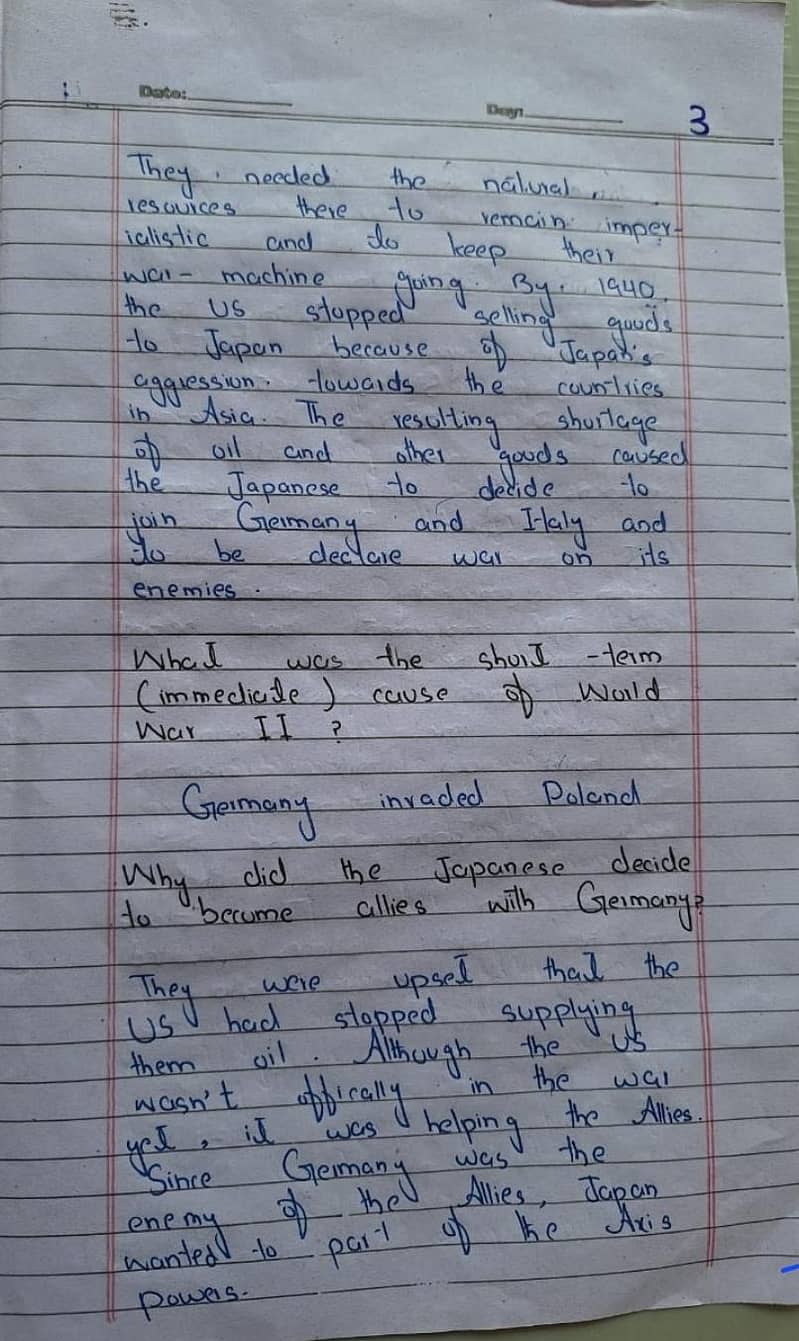 Date:
Day:
3
They needed the natural
resources there to remain imper-
ialistic and to keep their
war-machine going. By 1940,
the US stopped selling goods
to Japan because of Japan's
aggression towards the countries
in Asia. The resulting shortage
of oil and other goods caused
the Japanese to decide to
join Germany and Italy and
to be declare war on its
enemies.
What was the short-term
(immediate) cause of World
War II ?
Germany invaded Poland
Why did the Japanese decide
to become allies with Germany?
They were upset that the
US had stopped supplying
them oil. Although the US
wasn't offically in the war
yet, it was helping the Allies.
Since Germany was the
enemy of the Allies, Japan
wanted to part of the Axis
powers.